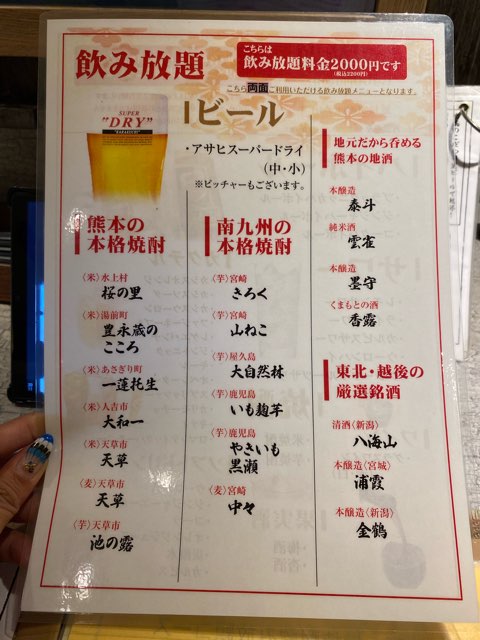 飲み放題
こちらは
飲み放題料金2000円です
(税込2200円)
こちら両面ご利用いただける飲み放題メニューとなります。
SUPER
"DRY"
ビール
・アサヒスーパードライ
(中・小)
※ピッチャーもございます。
熊本の
本格焼酎
〈米〉水上村
桜の里
〈米〉湯前町
豊永蔵の
こころ
〈米〉あさぎり町
一蓮托生
〈米〉人吉市
大和一
〈米〉天草市
天草
〈麦〉天草市
天草
〈芋〉天草市
池の露
南九州の
本格焼酎
〈芋〉宮崎
きろく
〈芋〉宮崎
山ねこ
〈芋〉屋久島
大自然林
〈芋〉鹿児島
いも麹芋
〈芋〉鹿児島
やきいも
黒瀬
〈麦〉宮崎
中々
地元だから呑める
熊本の地酒
本醸造
泰斗
純米酒
雲雀
本醸造
墨守
くまもとの酒
香露
東北・越後の
厳選銘酒
清酒〈新潟〉
八海山
本醸造〈宮城〉
浦霞
本醸造〈新潟〉
金鶴